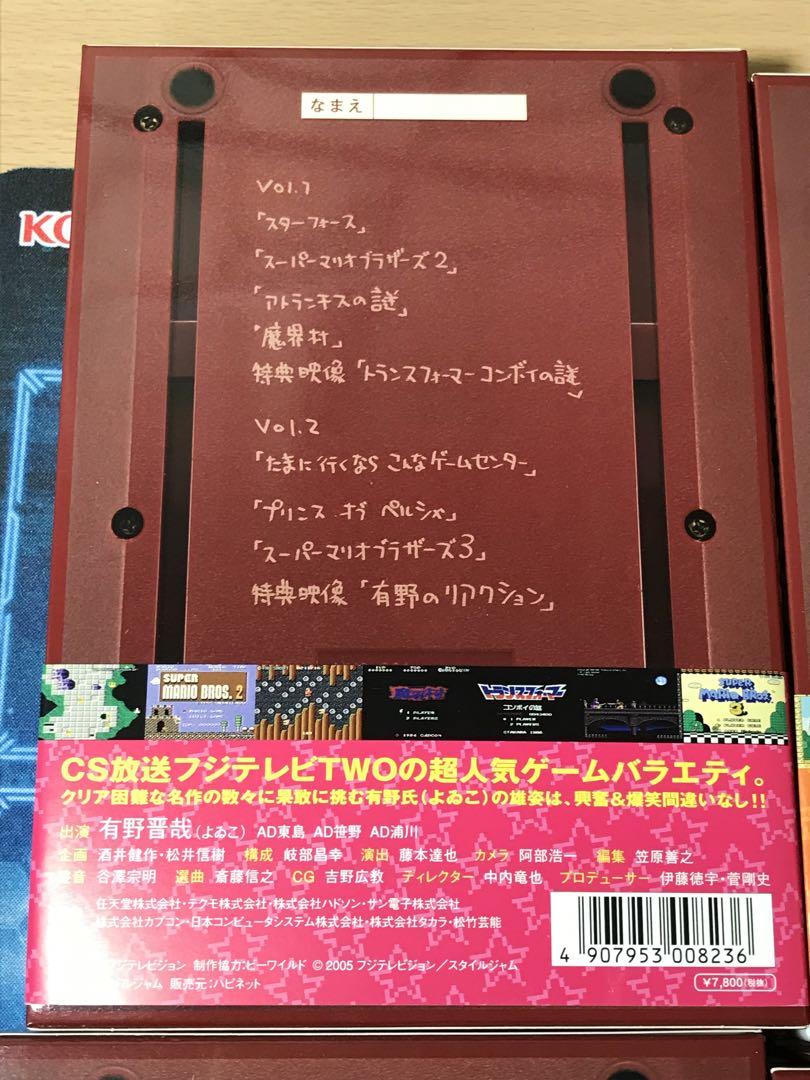 KO
なまえ
Vol.1
「スターフォース」
「スーパーマリオブラザーズ2」
「アトランチスの謎」
「魔界村」
特典映像「トランスフォーマー コンボイの謎」
Vol.2
「たまに行くなら こんなゲームセンター」
「プリンス オブ ペルシャ」
「スーパーマリオブラザーズ3」
特典映像「有野のリアクション」
SUPER
MARIO BROS. 2
魔界村
1 PLAYER
2 PLAYERS
トランスフォーマー
コンボイの謎
1 PLAYER
2 PLAYER
SUPER
MARIO BROS
3
CS放送フジテレビTWOの超人気ゲームバラエティ。
クリア困難な名作の数々に果敢に挑む有野氏(よゐこ)の雄姿は、興奮&爆笑間違いなし!!
出演 有野晋哉(よゐこ) AD東島 AD笹野 AD浦川
企画 酒井健作・松井信樹 構成 岐部昌幸 演出 藤本達也 カメラ 阿部浩一 編集 笠原善之
音 谷澤宗明 選曲 斎藤信之 CG 吉野広教 ディレクター 中内竜也 プロデューサー 伊藤徳宇・菅剛史
任天堂株式会社・テクモ株式会社・株式会社ハドソン・サン電子株式会社
株式会社カプコン・日本コンピュータシステム株式会社・株式会社タカラ・松竹芸能
フジテレビジョン 制作協力:ビーワイルド ©2005 フジテレビジョン/スタイルジャム
イルジャム 販売元:ハピネット
4 907953 008236
¥7,800(税抜)